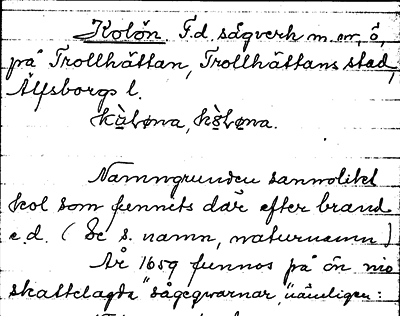 Kolön. F.d. sågverk m.m., ö,
på Trollhättan, Trollhättans stad,
Älfsborgs l.
kọ̀løna, kọ̀løna.
Namngrunden sannolikt
kol som funnits där efter brand
e.d. (Se s. namn, naturnamn)
År 1659 funnos på ön nio
skattelagda "sågeqwarnar", nämligen: